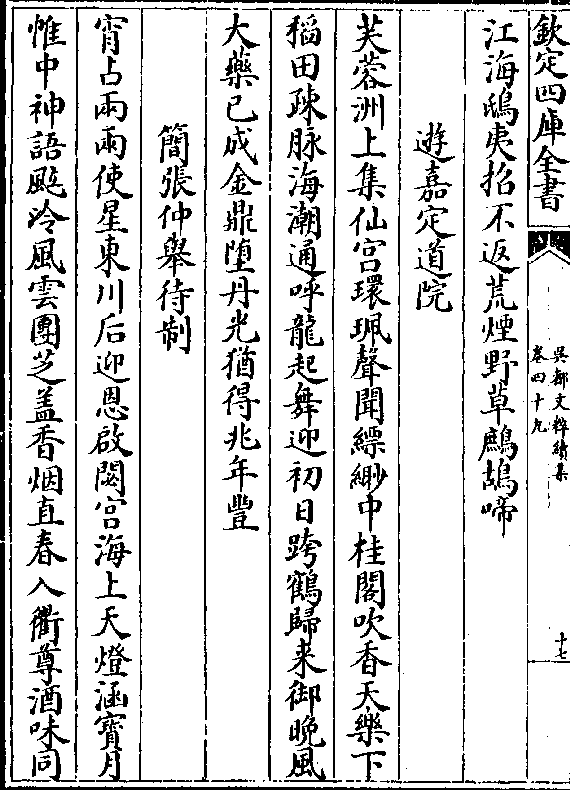 欽定四庫全書
吳都文粹續集
卷四十九
十七
江海鴟夷招不返荒煙野草鷓鴣啼
遊嘉定道院
芙蓉洲上集仙宫環珮聲聞縹緲中桂閣吹香天樂下
稻田疎脉海潮通呼龍起舞迎初日跨鶴歸来御晚風
大藥已成金鼎墮丹光猶得兆年豐
簡張仲舉待制
宵占兩兩使星東川后迎恩啟閟宫海上天燈涵寳月
帷中神語颭泠風雲團芝盖香烟直春入衢尊酒味同